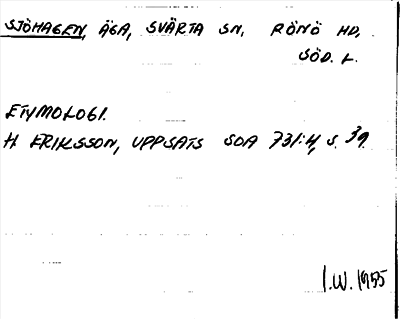 SJÖHAGEN, ÄGA, SVÄRTA SN, RÖNÖ HD,
SÖD. L.
ETYMOLOGI.
H ERIKSSON, UPPSATS SOA 731:4, S. 39.
I.W. 1955